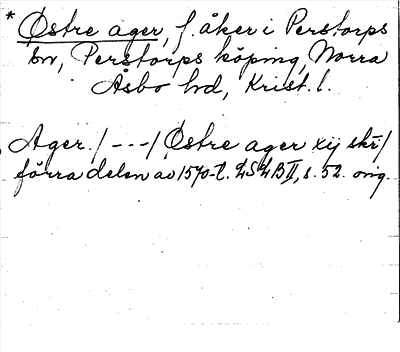 * Østre ager, f. åker i Perstorps
bv, Perstorps köping, Norra
Åsbo hd, Krist. l.
Ager. / - - - / Østre ager xij skr /
förra delen av 1570-t. LSLB II, s. 52. orig.